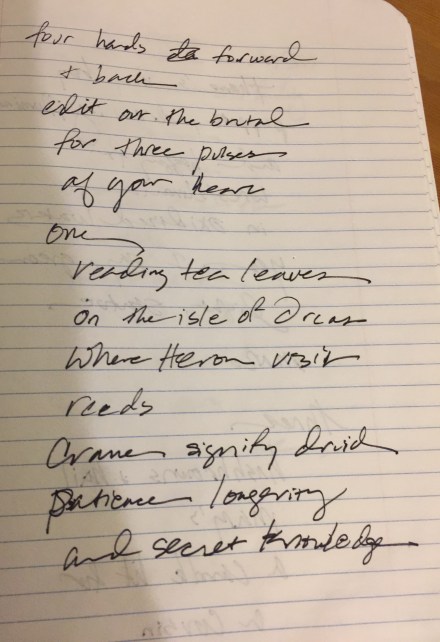 four hands forward
+ back
edit out the brutal
for three pulses
of your heart
one
reading tea leaves
on the isle of Orcas
where Heron visit
reeds
Cranes signify druid
patience longevity
and secret knowledge